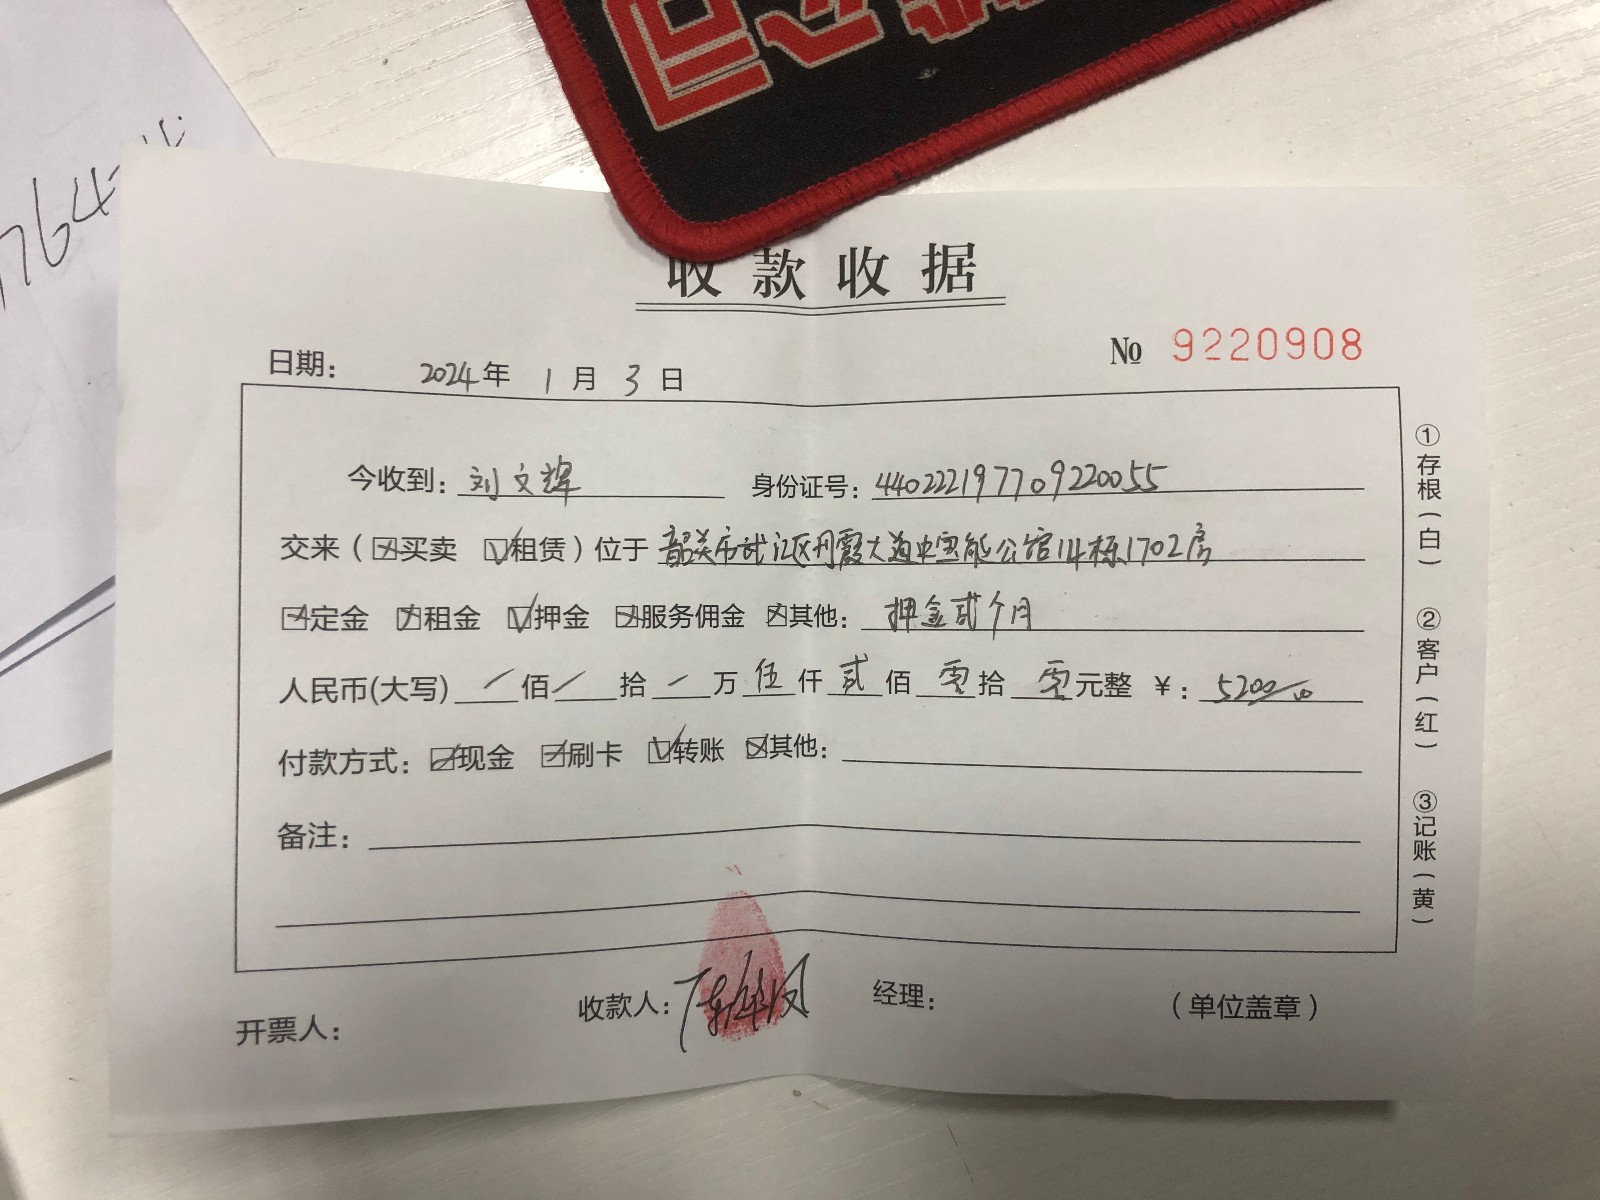 764
收款收据
№ 9220908
日期： 2024年 1 月 3 日
今收到：刘文辉 身份证号：440222197709220055
交来（☒买卖 ☑租赁）位于 韶关市武江区丹霞大道中宝能公馆14栋1702房
☒定金 ☒租金 ☑押金 ☒服务佣金 ☒其他：押金贰个月
人民币(大写) / 佰 / 拾 / 万 伍 仟 贰 佰 零 拾 零 元整 ￥：5200/00
付款方式：☒现金 ☒刷卡 ☑转账 ☒其他：
备注：
开票人： 收款人： 经理： （单位盖章）
①存根（白） ②客户（红） ③记账（黄）